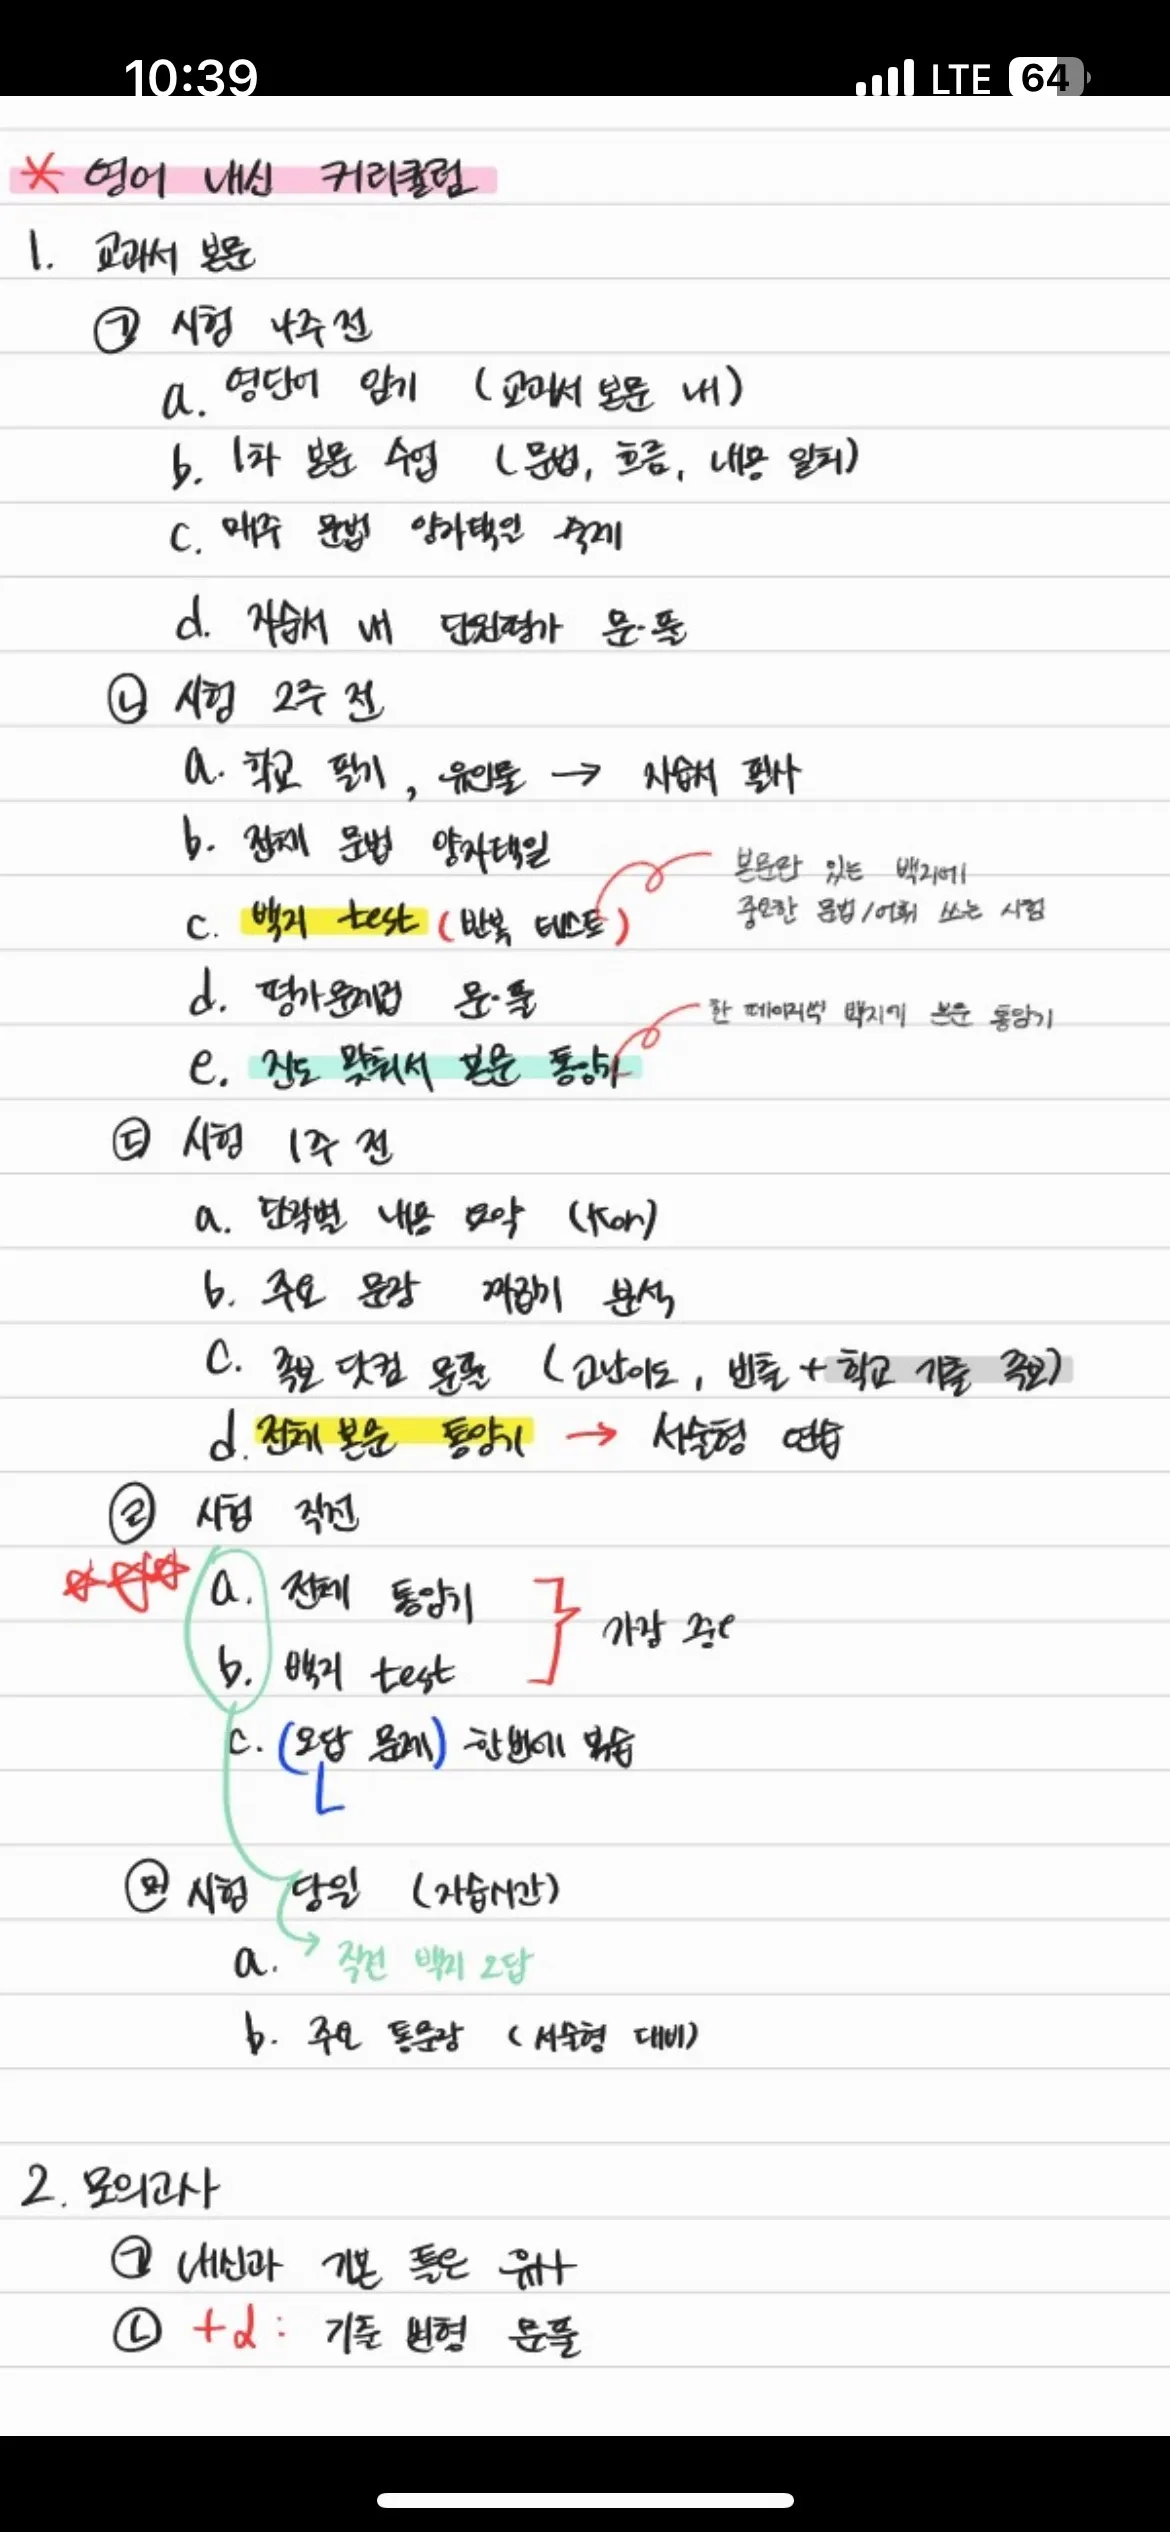 10:39 LTE 64
* 영어 내신 커리큘럼
1. 교과서 본문
㉠ 시험 4주 전
a. 영단어 암기 (교과서 본문 내)
b. 1차 본문 수업 (문법, 흐름, 내용 일치)
c. 매주 문법 양자택일 숙제
d. 자습서 내 단원평가 문·풀
㉡ 시험 2주 전
a. 학교 필기, 유인물 → 자습서 필사
b. 전체 문법 양자택일
본문만 있는 백지에
중요한 문법/어휘 쓰는 시험
c. 백지 test (반복 테스트)
d. 평가문제집 문·풀
한 페이지씩 백지에 본문 통암기
e. 진도 맞춰서 본문 통암기
㉢ 시험 1주 전
a. 단락별 내용 요약 (Kor)
b. 주요 문장 끊기 분석
c. 족보닷컴 문풀 (고난이도, 빈출 + 학교 기출 족보)
d. 전체 본문 통암기 → 서술형 연습
㉣ 시험 직전
a. 전체 통암기
b. 백지 test
가장 중요
c. (오답 문제) 한번에 복습
㉤ 시험 당일 (자습시간)
a. 직전 백지 오답
b. 주요 통문장 (서술형 대비)
2. 모의고사
㉠ 내신과 기본 틀은 유사
㉡ +α : 기출 변형 문풀